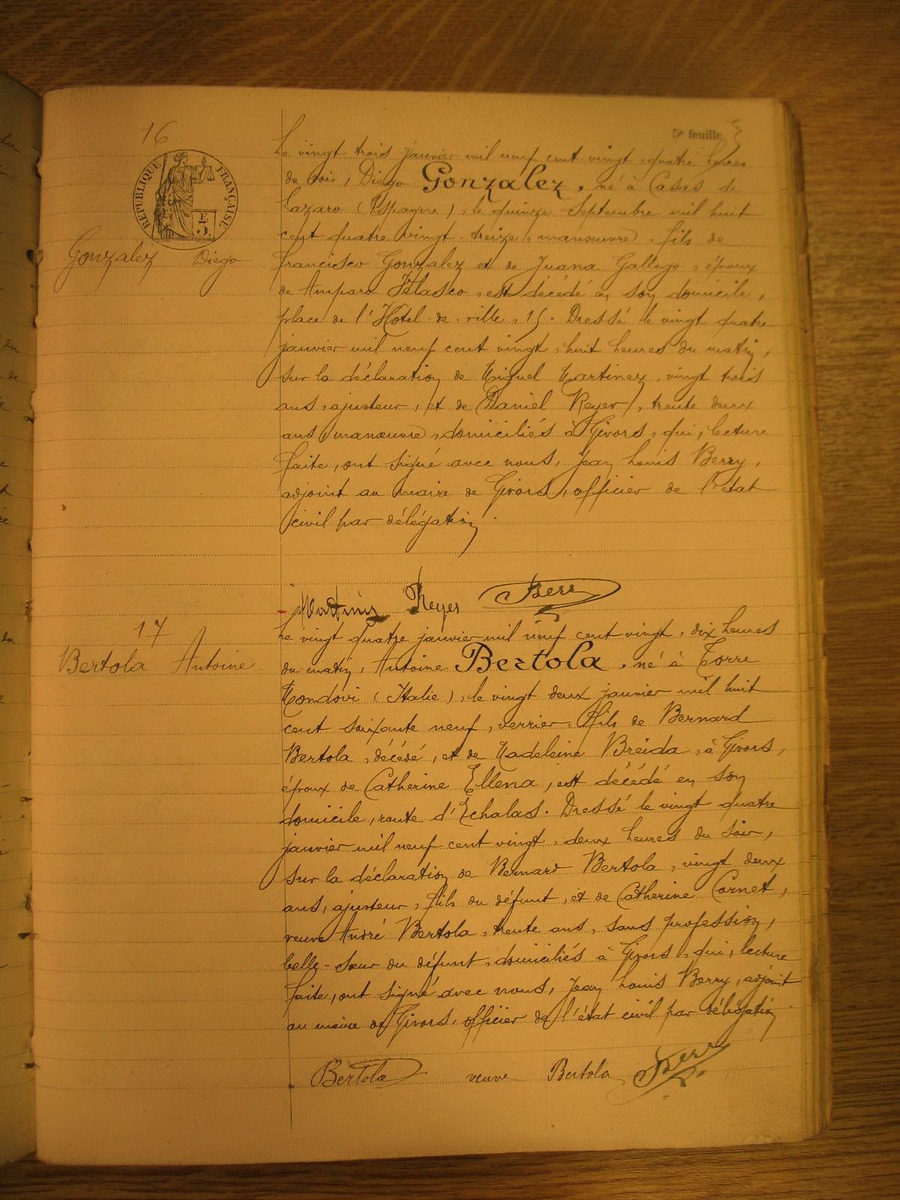 16
5e feuille
RÉPUBLIQUE FRANÇAISE
Gonzaléz Diego
Le vingt trois janvier mil neuf cent vingt, quatre heures
du soir, Diégo Gonzalez, né à Casas de
Lazaro (Espagne), le quinze Septembre mil huit
cent quatre vingt treize, manœuvre, fils de
Francisco Gonzalez et de Juana Gallego, époux
de Amparo Blasco, est décédé en son domicile,
place de l'Hôtel-de-ville, 15. Dressé le vingt quatre
janvier mil neuf cent vingt, huit heures du matin,
sur la déclaration de Miguel Martinez, vingt trois
ans, ajusteur, et de Daniel Reyer, trente deux
ans, manœuvre, domiciliés à Givors, qui, lecture
faite, ont signé avec nous, Jean Louis Berry,
adjoint au maire de Givors, officier de l'état
civil par délégation
Martinez Reyer Berry
17
Bertola Antoine
Le vingt quatre janvier mil neuf cent vingt, dix heures
du matin, Antoine Bertola, né à Torre
Mondovi (Italie), le vingt deux janvier mil huit
cent soixante neuf, verrier, fils de Bernard
Bertola, décédé, et de Madeleine Breida, à Givors,
époux de Catherine Ellena, est décédé en son
domicile, route d'Echalas. Dressé le vingt quatre
janvier mil neuf cent vingt, deux heures du soir,
sur la déclaration de Bernard Bertola, vingt deux
ans, ajusteur, fils du défunt, et de Catherine Cornet,
veuve André Bertola, trente ans, sans profession,
belle-sœur du défunt, domiciliés à Givors, qui, lecture
faite, ont signé avec nous, Jean Louis Berry, adjoint
au maire de Givors, officier de l'état civil par délégation
Bertola veuve Bertola Berry